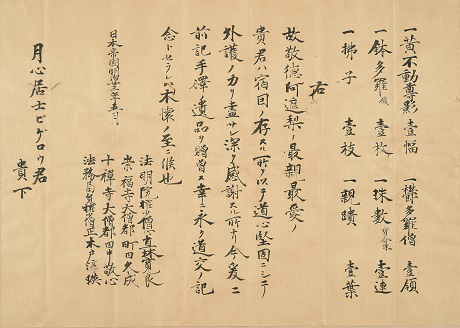 一黄不動尊影 壹幅 一欝多羅僧 壹領
一鉢多羅 壹枚 一珠數 壹連
一拂子 壹枝 一親蹟 壹葉
右
故敬徳阿遮梨ノ最親最愛ノ
貴君ハ宿因ノ存スル所ヲ以テ道心堅固ニシテ
外護ノ力ヲ盡サレ深ク感謝スル所ナリ今爰ニ
前記手澤ノ遺品ヲ贈曽ス幸ニ永ク道交ノ記
念トセラレハ本懐ノ至ニ候也
日本帝國明治 年五月 日
法明院 直林寛良
崇福寺大僧都町田久成
十禪寺大僧都田中敬心
法務局 權 僧正木戸
月心居士ビゲロウ君
貴下